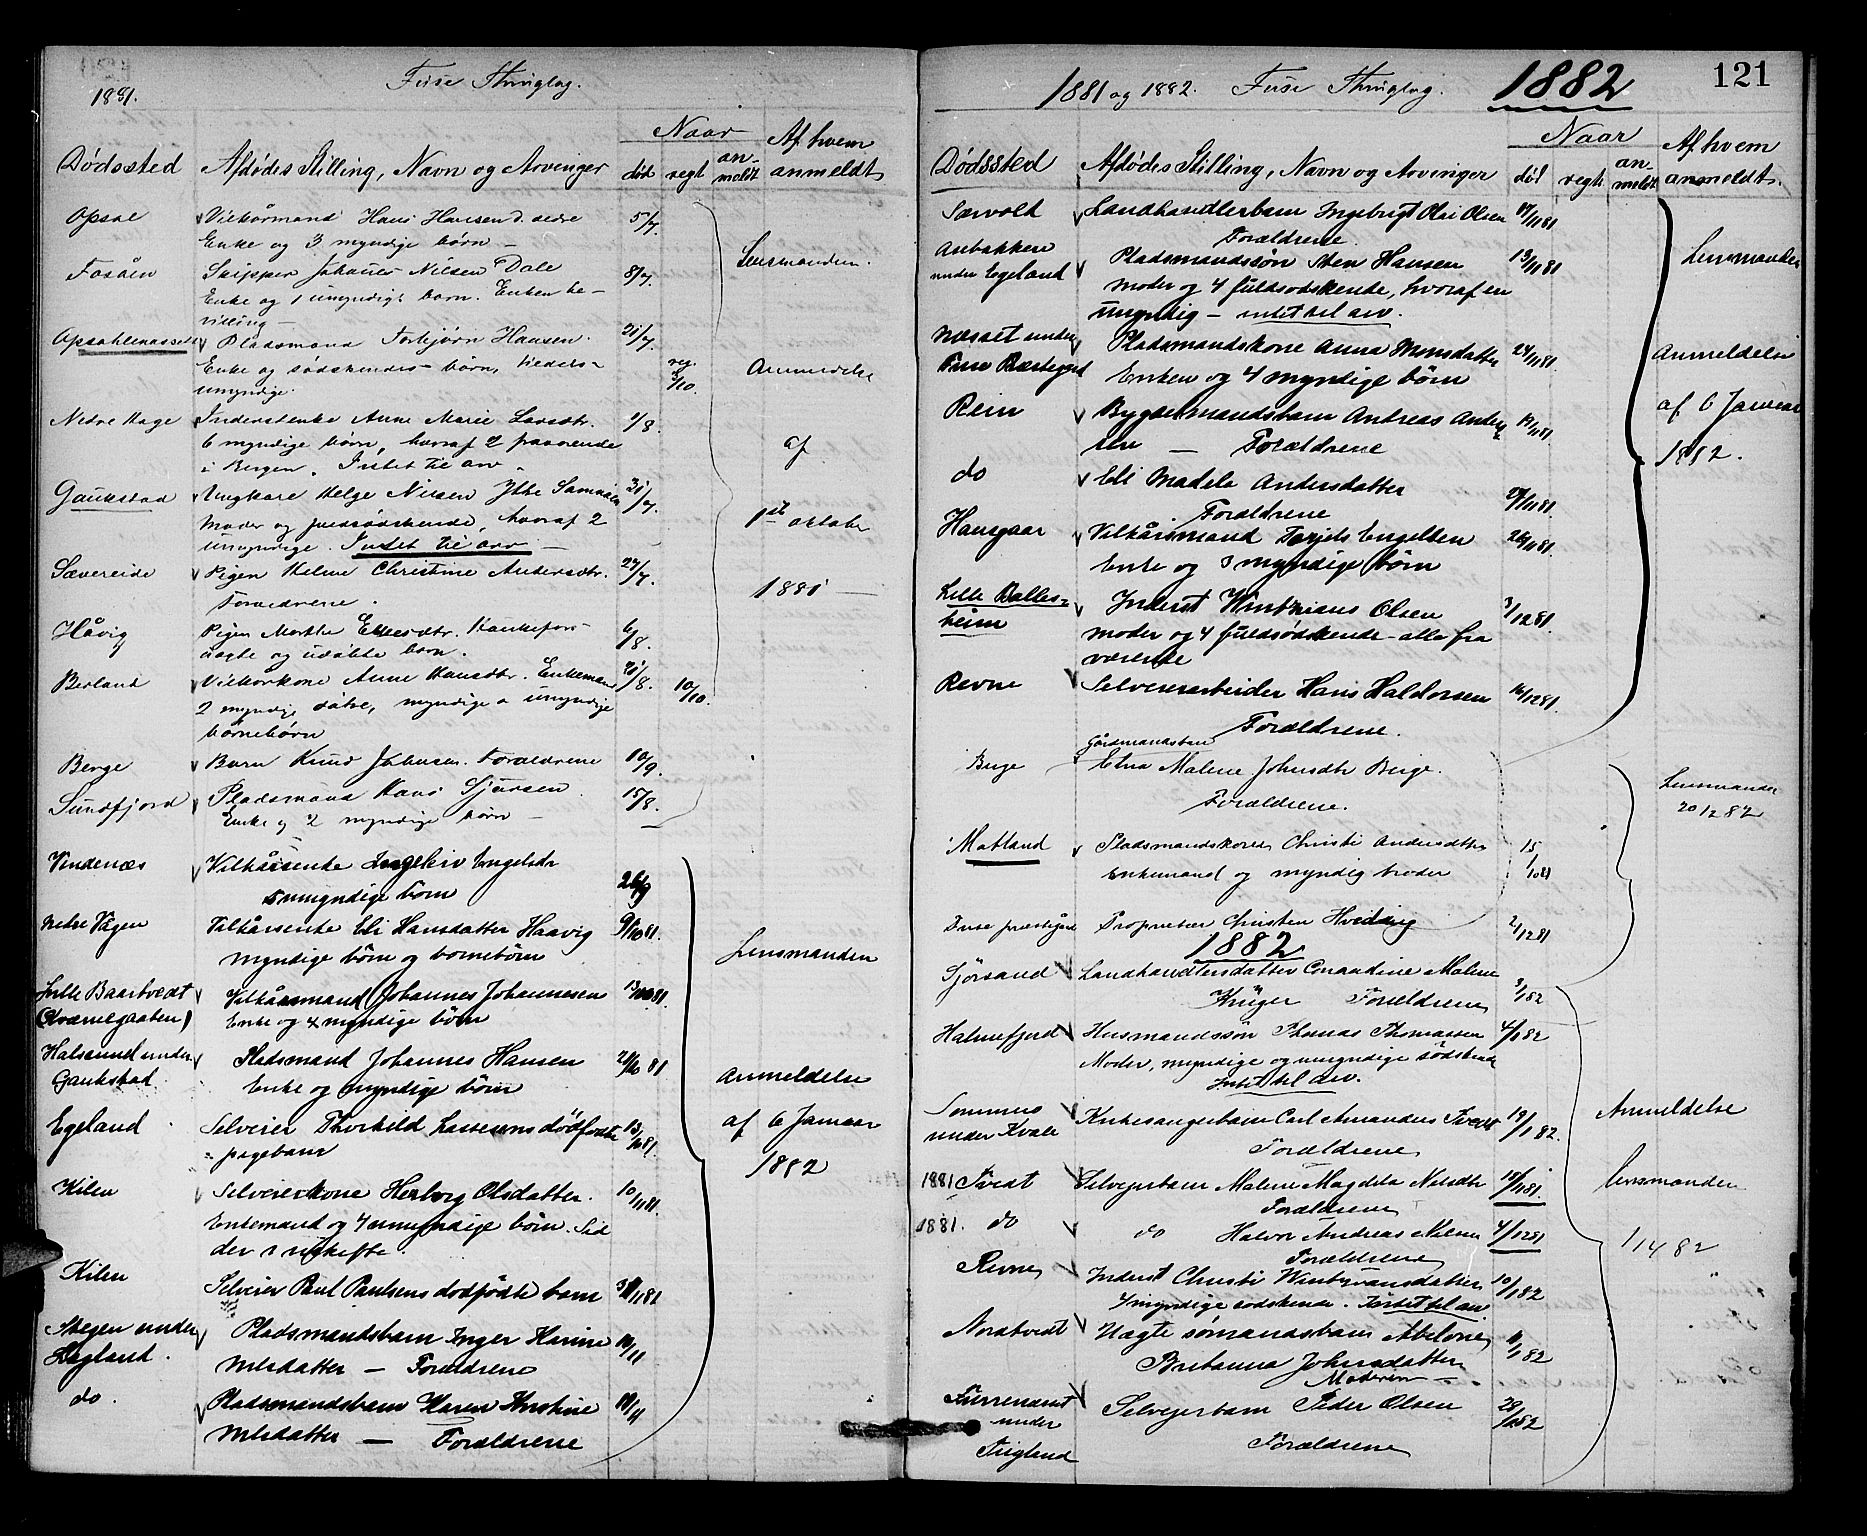 1881. Fuse Thinglag.
Naar Af hvem
Dødssted Afdødes Stilling, Navn og Arvinger død regt an-meldt anmeldt
Opsal Vilkårmand Hans Hansen d. ældre 5/7.
Enke og 3 myndige børn - Lensmanden.
Fosåen Skipper Johannes Nilsen Dale 8/7.
Enke og 1 umyndigt barn. Enken be-
villing -
Opsahlenæsset Pladsmand Torbjørn Hansen. 21/7.
Enke og sødskendes-børn, tildels- reg. 3/10. Anmeldelse
umyndige.
Nedre Hage Inderstenke Anne Marie Larsdtr. 1/8.
6 myndige børn, hvoraf 2 fraværende af
i Bergen. Intet til arv.
Gaukstad Ungkare Helge Nilsen Ytre Samnøen 31/7.
Moder og fuldsødskende, hvoraf 2 1ste oktober
umyndige. Intet til arv -
Sævereide Pigen Helene Christine Andersdtr. 27/7.
Forældrene. 1881 -
Håvig Pigen Marthe Ellevsdtr. 6/8.
ægte og uægte børn.
Berland Vilkårkone Anne Hansdtr. Enkemand 21/8. 10/10.
2 myndige døtre, myndige o umyndige
børnebørn
Berge Barn Knud Johansen. Forældrene 10/9.
Sundfjord Pladsmand Hans Sjursen. 15/8.
Enke og 2 myndige børn -
Vindenæs Vilkårsenke Ingeleiv Engelsdtr
5 myndige børn 26/9
Nedre Vågen Vilkårsenke Eli Hansdatter Haavig 9/10 81.
myndige børn og børnebørn Lensmanden
Lille Baartvedt Vilkårsmand Johannes Johannesen 13/10 81.
(Kværnegaaben) Enke og 4 myndige børn
Halsund under Pladsmand Johannes Hansen 21/10 81
Gaukstad. Enke og myndige børn Anmeldelse
Egeland Selveier Thorkild Lassesens dødfødte 13/10 81.
pigebarn af 6 Januar
Kilen Selveierkone Herborg Olsdatter. 10/11 81.
Enkemand og 4 umyndige børn. Sid 1882
der i uskifte.
Kilen Selveier Paul Paulsens dødfødte barn 3/11 81
Stegen under Pladsmandsbarn Inger Karine 10/11
Hegland. Nilsdatter - Forældrene
do. Pladsmandsbarn Karen Kristine 10/11
Nilsdatter - Forældrene
1881 og 1882. Fuse Thinglag. 1882 121
Naar Af hvem
Dødssted Afdødes Stilling, Navn og Arvinger død regt. an meldt anmeldt.
Sævold Landhandlerbarn Ingebrigt Olai Olsen 17/11 81
Forældrene.
Aubakkene Pladsmandssøn Sten Hansen 13/11 81 Lensmanden
under Egeland Moder og 4 fuldsødskende, hvoraf en
umyndig - intet til arv.
Næsset under Pladsmandskone Anna Monsdatter 24/11 81.
Fuse Præstegård Enken og 4 myndige børn Anmeldelse
Rein Bygselmandsbarn Andreas Ander- 19/11 81.
sen - Forældrene af 6 Januar
do Eli Madele Andersdatter 27/11 81. 1882.
Forældrene
Hansgaar Vilkårsmand Torjels Engelsen 26/11 81.
Enke og 3 myndige børn
Lille Balles- Inderst Wintzians Olsen 3/12 81.
heim moder og 4 fuldsødskende - alle fra
værende
Revne Selveierarbeider Hans Haldorsen 16/12 81.
Forældrene.
Gårdmandsbarn
Berge Elna Malene Johnsdtr Berge.
Forældrene. Lensmanden
20 1/2 82
Matland Pladsmandskone Christi Andersdtr 15/10 81
Enkemand og myndig broder
Fuse præstegård Proprietær Christen Hvidding 2/12 81
1882
Sjørsand Landhandlersdatter Amandine Malene 3/1 82
Krüger Forældrene
Halmefjord Husmandssøn Thomas Thomassen 4/1 82
Moder, myndige og umyndige sødskende
Intet til arv.
Sommus Kirkesangerbarn Carl Amandus Tvedt 19/1 82. Anmeldelse
under Kvale Forældrene
1881 Tvedt Selvejerbarn Malene Magdela Nilsdtr 18/11 81. lensmanden
Forældrene
1881. do do Halvor Andreas Nilsen 4/12 81
Forældrene 1/4 82
Revne Inderst Christi Wintzansdatter 10/1 82
4 myndige sødskende. Intet til arv
Nordtvedt Uægte sømandsbarn Abelone 11/1 82
Britanna Johnsdatter
Moderen -
Furrenæset Selvejerbarn Peder Olsen 28/1 82
under Forældrene
Stigland